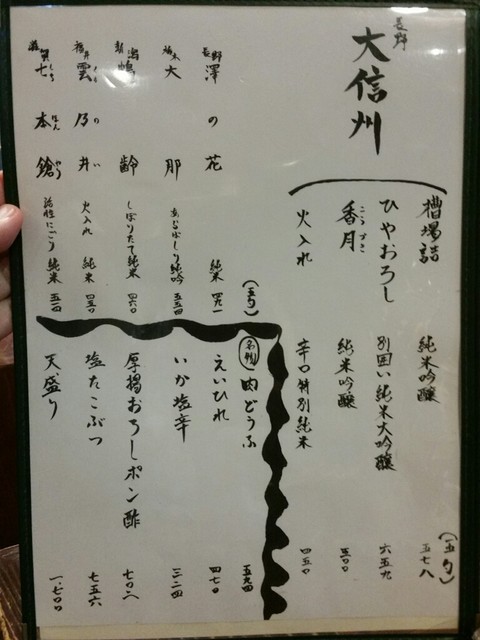 長野
大信州
槽場詰 純米吟醸 五七八
(一五勺)
ひやおろし 別囲い純米大吟醸 六五九
香月 純米吟醸 五〇〇
こうづき
火入れ 辛口特別純米 四五〇
長野 澤の花 純米 四九一
(一五勺)
栃木 大那 あらばしり純吟 五五四
新潟 鶴齢 しぼりたて純米 四六〇
福井 雲乃井 火入れ 純米 四五〇
くものい
滋賀 七本鎗 活性にごり 純米 五一四
しちほんやり
名物 肉どうふ 五九四
えいひれ 四七〇
いか塩辛 三二四
厚揚おろしポン酢 七〇二
塩たこぶつ 七五六
天盛り 一、七〇〇